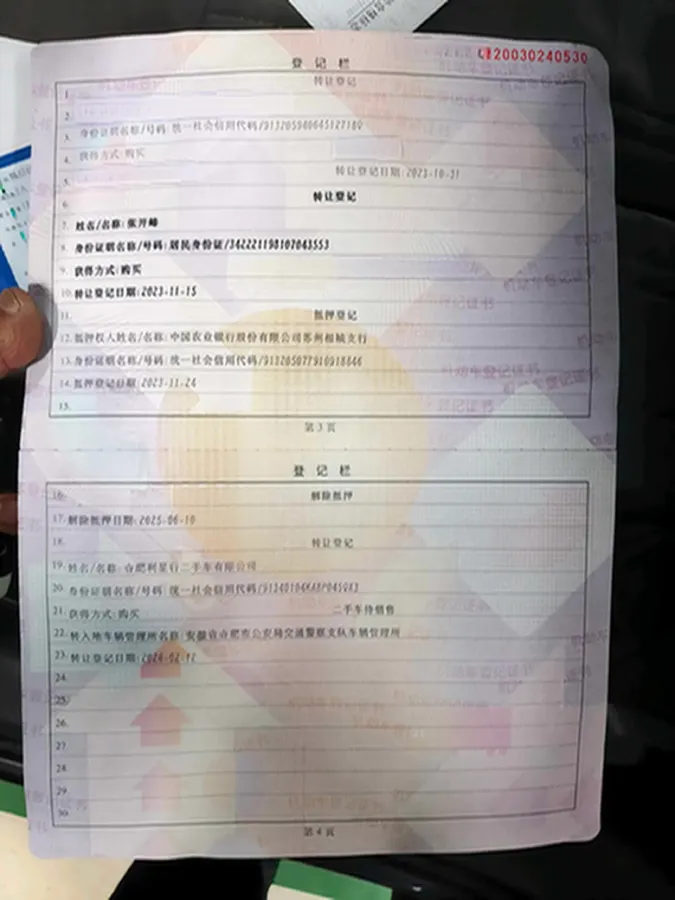 20030240530
登记栏
1. 转让登记
2.
3. 身份证明名称/号码:统一社会信用代码/913205980645127180
4. 获得方式:购买
5. 转让登记日期:2023-10-31
6. 转让登记
7. 姓名/名称:张开峰
8. 身份证明名称/号码:居民身份证/342221198107043553
9. 获得方式:购买
10. 转让登记日期:2023-11-15
11. 抵押登记
12. 抵押权人姓名/名称:中国农业银行股份有限公司苏州相城支行
13. 身份证明名称/号码:统一社会信用代码/913205077910918846
14. 抵押登记日期:2023-11-24
15.
第3页
登记栏
16. 解除抵押
17. 解除抵押日期:2025-06-10
18. 转让登记
19. 姓名/名称:合肥利星行二手车有限公司
20. 身份证明名称/号码:统一社会信用代码
21. 获得方式:购买 二手车待销售
22. 转入地车辆管理所名称:安徽省合肥市公安局交通警察支队车辆管理所
23. 转让登记日期:
24.
25.
26.
27.
28.
29.
30.
第4页